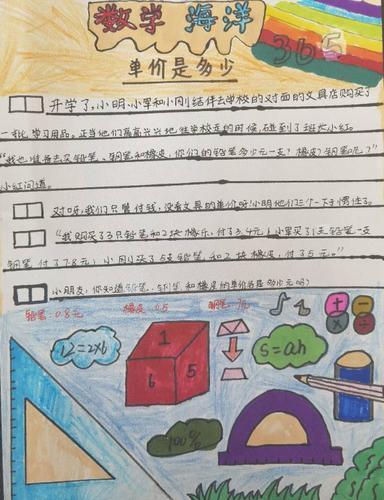 数学 海洋
365
单价是多少
开学了,小明、小军和小刚结伴去学校的对面的文具店购买了
一批学习用品。正当他们高高兴兴地往学校走的时候,碰到了班长小红。
"我也准备去买铅笔、钢笔和橡皮,你们的铅笔多少元一支?橡皮?钢笔呢?"
小红问道。
对呀,我们只管付钱,没看文具的单价呀!小明他们三个一下子愣住了。
"我购买了3只铅笔和2块橡乐,付了3.4元;小军买了1支铅笔一支
钢笔,付了7.8元;小刚买了5支铅笔和2块橡皮,付了5元。"
小朋友,你知道铅笔、钢笔和橡皮的单价各是多少元吗?
铅笔:0.8元 橡皮:0.5 钢笔:7元
12=2×6
1
6
5
S=ah
+ -
× ÷
100%